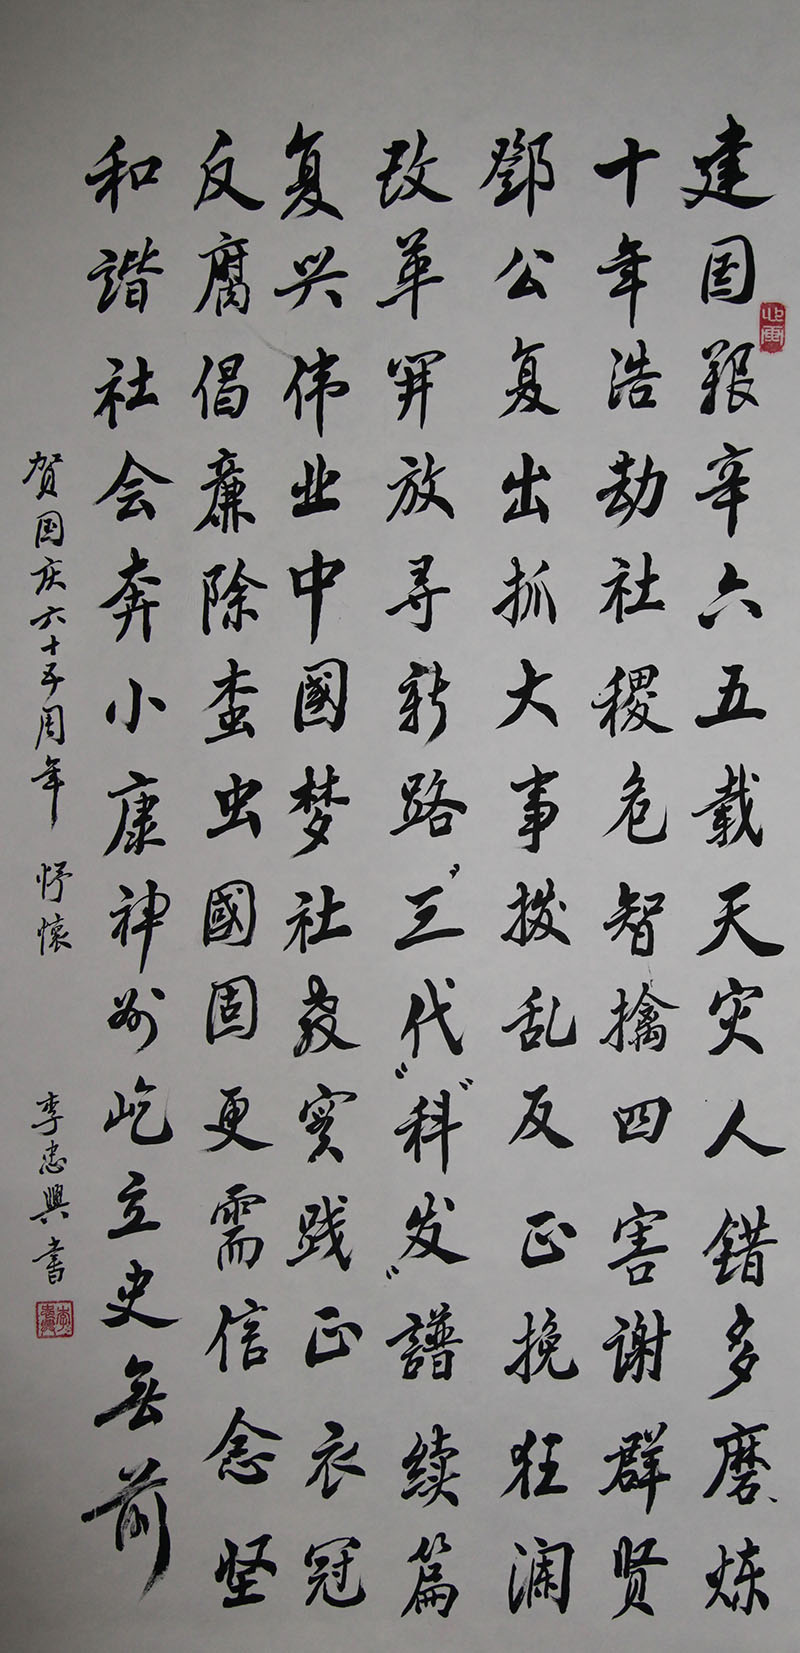 建国艰辛六五载天灾人错多磨炼
十年浩劫社稷危智擒四害谢群贤
鄧公复出抓大事拨乱反正挽狂澜
改革开放寻新路“三代”“科发”譜续篇
复兴伟业中國梦社教实践正衣冠
反腐倡廉除蠹虫國固更需信念坚
和谐社会奔小康神州屹立史无前
贺国庆六十五周年 抒懷 李忠興书